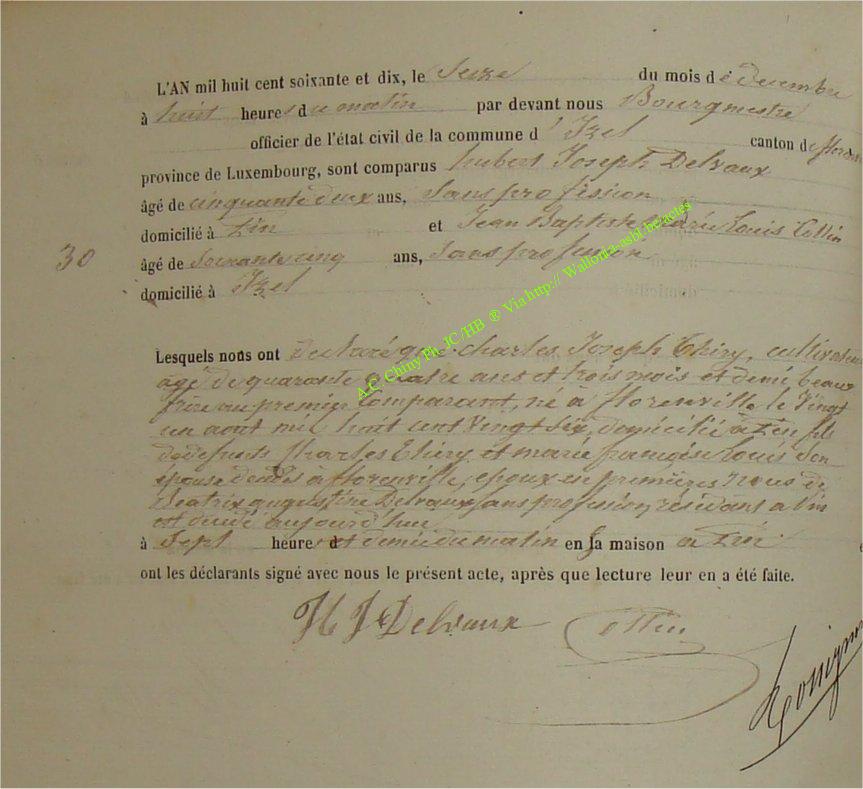 L'AN mil huit cent soixante et dix, le Seize du mois de décembre
à huit heures du matin par devant nous Bourgmestre
officier de l'état civil de la commune d' Izel canton de floren
province de Luxembourg, sont comparus hubert Joseph Delvaux
âgé de cinquante deux ans, Sans profession
domicilié à Pin et Jean Baptiste Marie Louis Collin
30 âgé de Soixante cinq ans, Sans profession
domicilié à Izel
Lesquels nous ont declaré que charles Joseph Thiry, cultivateur
agé de quarante quatre ans et trois mois et demi, beau
frère au premier comparant, né a florenville le Vingt
un aout mil huit cent Vingt Six, domicilié a Pin fils
de defunts Charles Thiry et marie françoise Louis Son
épouse décédés à florenville, epoux en premières noces de
Béatrix augustine Delvaux, sans profession, résidant a Pin
est décédé aujourd'hui
à Sept heures et demie du matin en sa maison a Pin
ont les déclarants signé avec nous le présent acte, après que lecture leur en a été faite.
H J Delvaux Collin
A.C. Chiny Ph. JC/HB ® Via http:// Wallonia-asbl.be/actes